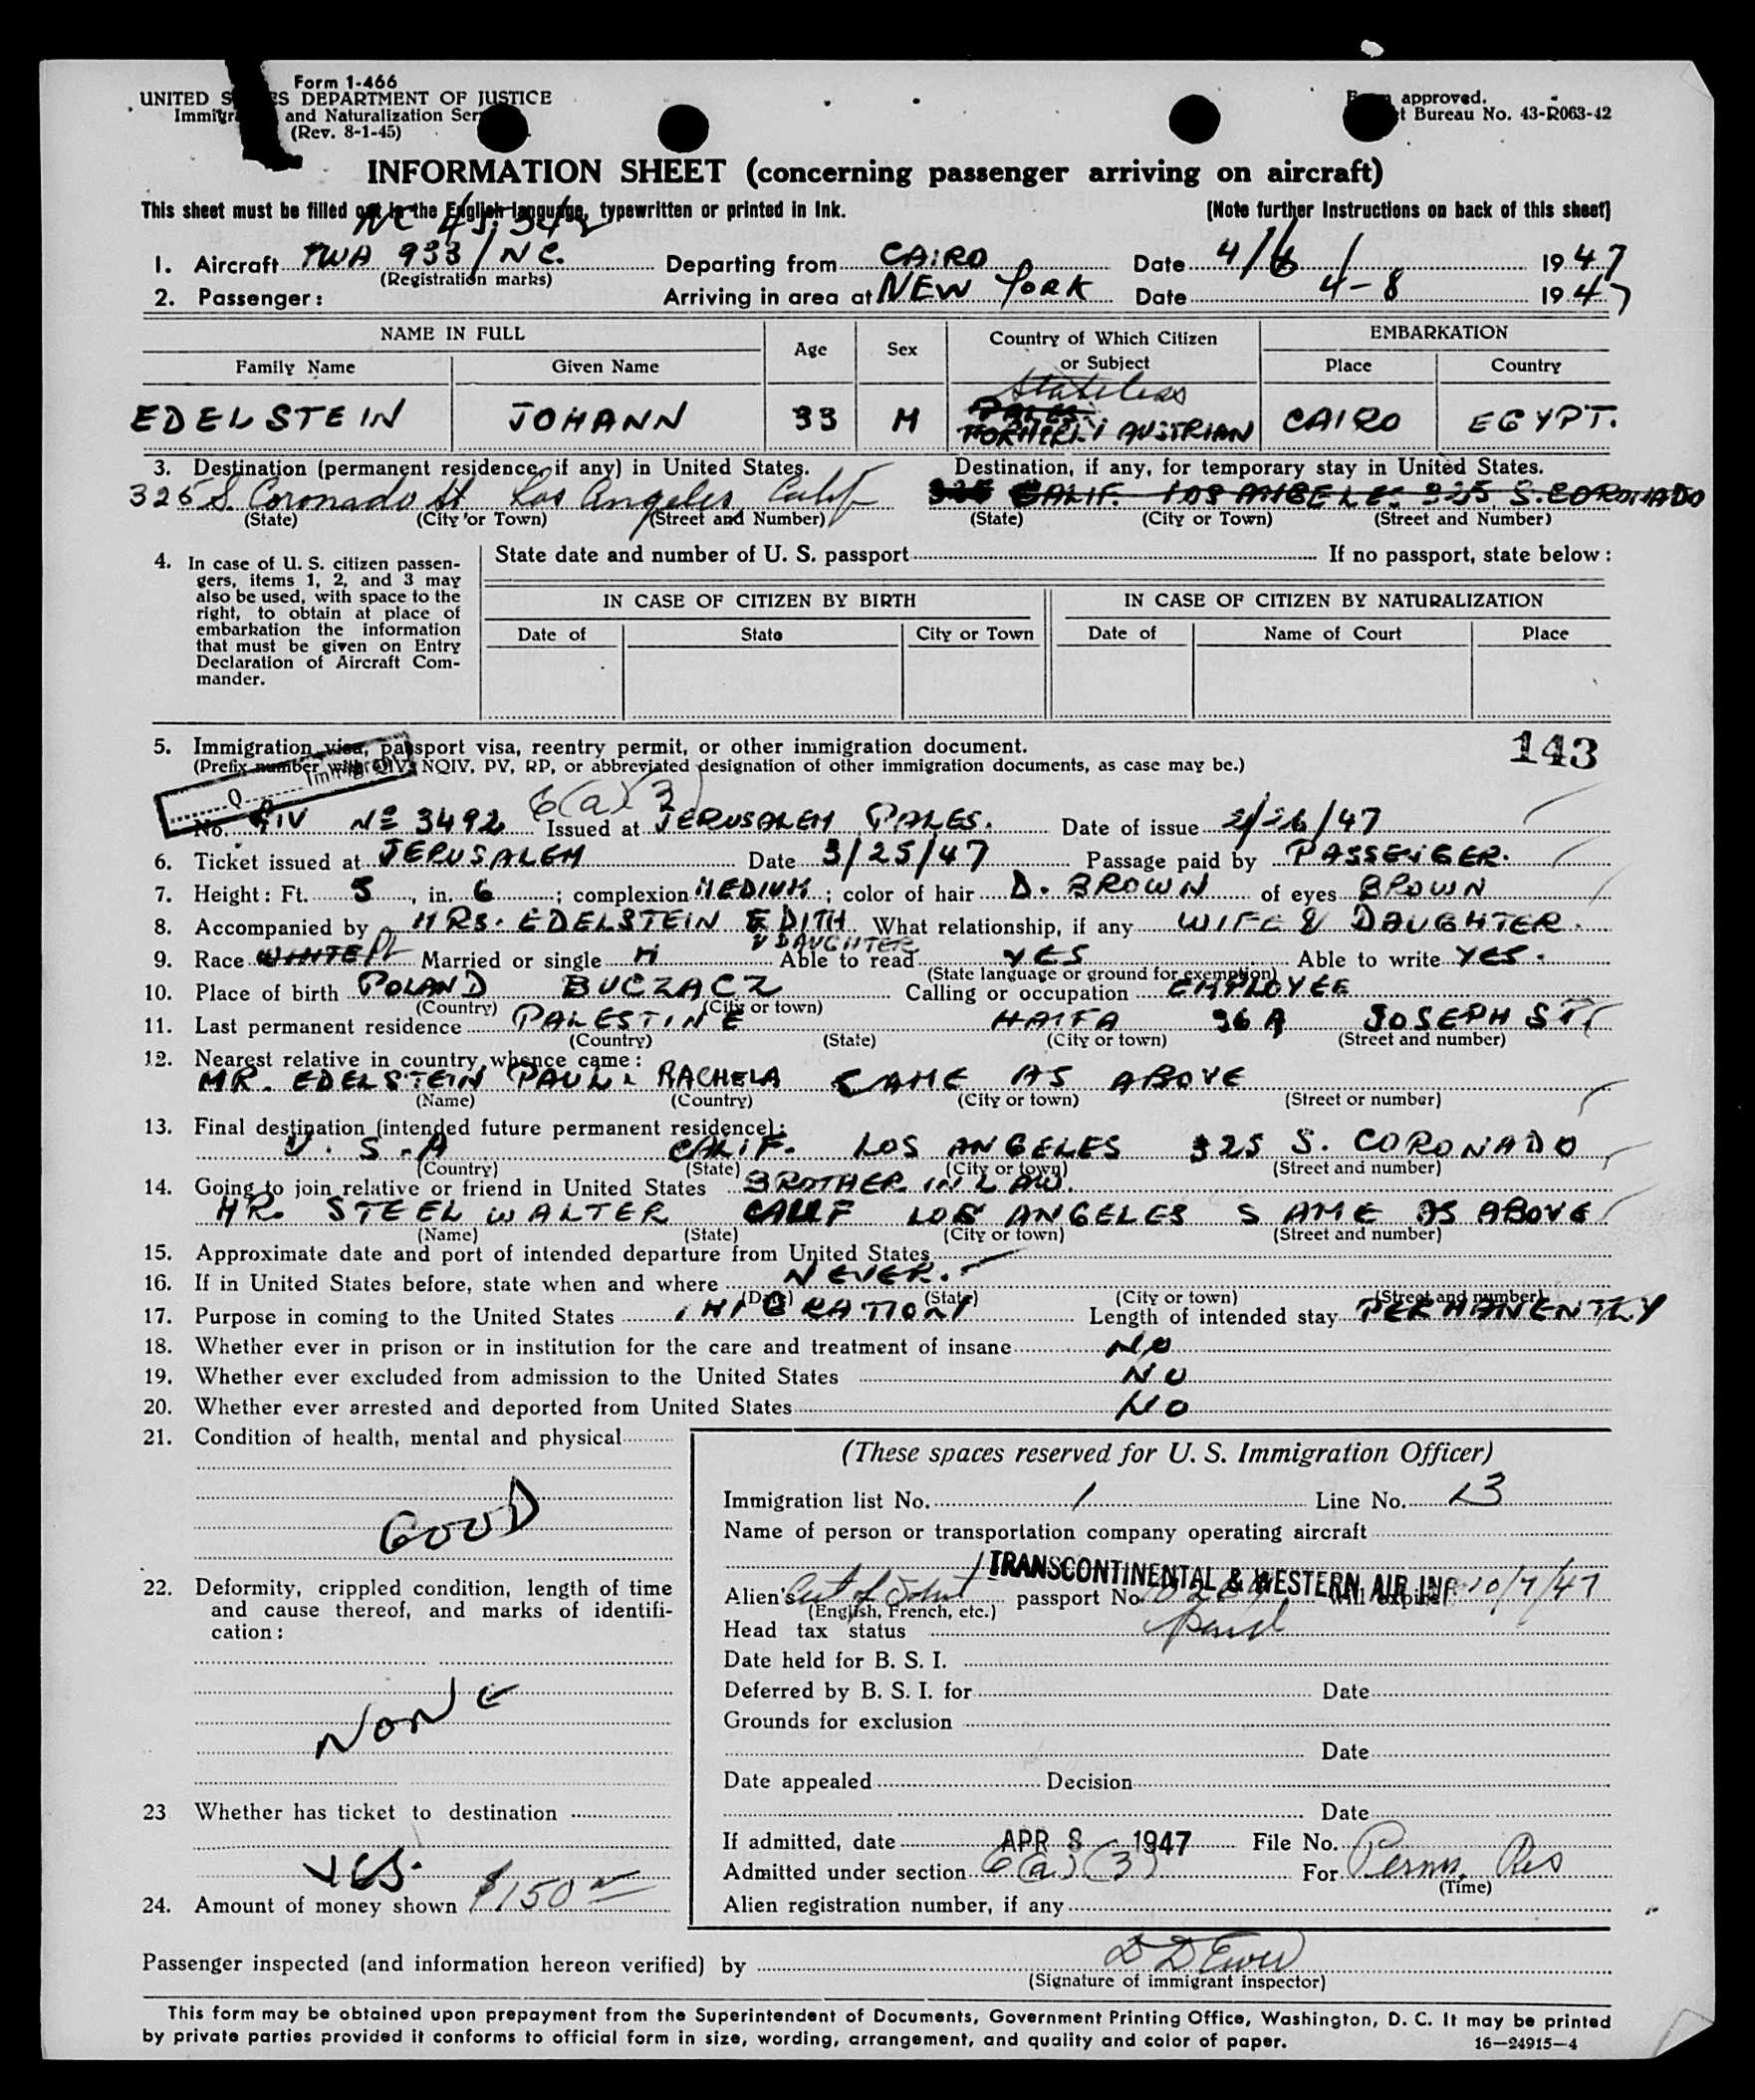 Form 1-466
UNITED S ES DEPARTMENT OF JUSTICE
Immigra and Naturalization Ser
(Rev. 8-1-45)
approved.
t Bureau No. 43-R063-42
INFORMATION SHEET (concerning passenger arriving on aircraft)
This sheet must be filled out in the English language, typewritten or printed in Ink. (Note further Instructions on back of this sheet)
NC 45342
1. Aircraft TWA 933/NC. Departing from CAIRO Date 4/6/ 1947
(Registration marks)
2. Passenger: Arriving in area at NEW YORK Date 4-8 1947
NAME IN FULL Age Sex Country of Which Citizen or Subject EMBARKATION
Family Name Given Name Place Country
Stateless
PALES.
EDELSTEIN JOHANN 33 M FORMERLY AUSTRIAN CAIRO EGYPT.
3. Destination (permanent residence, if any) in United States. Destination, if any, for temporary stay in United States.
325 S. Coronado St Los Angeles, Calif CALIF. LOS ANGELES 325 S. CORONADO
(State) (City or Town) (Street and Number) (State) (City or Town) (Street and Number)
4. In case of U. S. citizen passen-
gers, items 1, 2, and 3 may
also be used, with space to the
right, to obtain at place of
embarkation the information
that must be given on Entry
Declaration of Aircraft Com-
mander.
State date and number of U. S. passport If no passport, state below:
IN CASE OF CITIZEN BY BIRTH IN CASE OF CITIZEN BY NATURALIZATION
Date of State City or Town Date of Name of Court Place
5. Immigration visa, passport visa, reentry permit, or other immigration document.
(Prefix number with QIV, NQIV, PV, RP, or abbreviated designation of other immigration documents, as case may be.)
143
Q Immigrant
6(a)(3)
No. QIV No 3492 Issued at JERUSALEM PALES. Date of issue 2/26/47
6. Ticket issued at JERUSALEM Date 3/25/47 Passage paid by PASSENGER.
7. Height: Ft. 5, in. 6; complexion MEDIUM; color of hair D. BROWN of eyes BROWN
8. Accompanied by MRS. EDELSTEIN EDITH What relationship, if any WIFE & DAUGHTER.
& DAUGHTER
9. Race WHITE Married or single M Able to read YES Able to write YES.
(State language or ground for exemption)
10. Place of birth POLAND BUCZACZ Calling or occupation EMPLOYEE
(Country) (City or town)
11. Last permanent residence PALESTINE HAIFA 36A JOSEPH ST
(Country) (State) (City or town) (Street and number)
12. Nearest relative in country whence came:
MR. EDELSTEIN PAUL & RACHELA SAME AS ABOVE
(Name) (Country) (City or town) (Street or number)
13. Final destination (intended future permanent residence):
U.S.A CALIF. LOS ANGELES 325 S. CORONADO
(Country) (State) (City or town) (Street and number)
14. Going to join relative or friend in United States BROTHER IN LAW.
MR. STEEL WALTER CALIF LOS ANGELES SAME AS ABOVE
(Name) (State) (City or town) (Street and number)
15. Approximate date and port of intended departure from United States
16. If in United States before, state when and where NEVER.
(Date) (State) (City or town) (Street and number)
17. Purpose in coming to the United States IMIGRATION Length of intended stay PERMANENTLY
18. Whether ever in prison or in institution for the care and treatment of insane NO
19. Whether ever excluded from admission to the United States NO
20. Whether ever arrested and deported from United States NO
21. Condition of health, mental and physical
GOOD
22. Deformity, crippled condition, length of time
and cause thereof, and marks of identifi-
cation:
NONE
23 Whether has ticket to destination
YES.
24. Amount of money shown $150
(These spaces reserved for U. S. Immigration Officer)
Immigration list No. 1 Line No. 13
Name of person or transportation company operating aircraft
TRANSCONTINENTAL & WESTERN AIR INC
Alien's Cert of Ident passport No. Will expire 10/7/47
(English, French, etc.)
Head tax status paid
Date held for B. S. I.
Deferred by B. S. I. for Date
Grounds for exclusion
Date
Date appealed Decision
Date
If admitted, date APR 8 1947 File No.
Admitted under section 6(a)(3) For Perm. Res
(Time)
Alien registration number, if any
Passenger inspected (and information hereon verified) by
(Signature of immigrant inspector)
This form may be obtained upon prepayment from the Superintendent of Documents, Government Printing Office, Washington, D. C. It may be printed
by private parties provided it conforms to official form in size, wording, arrangement, and quality and color of paper. 16—24915-4